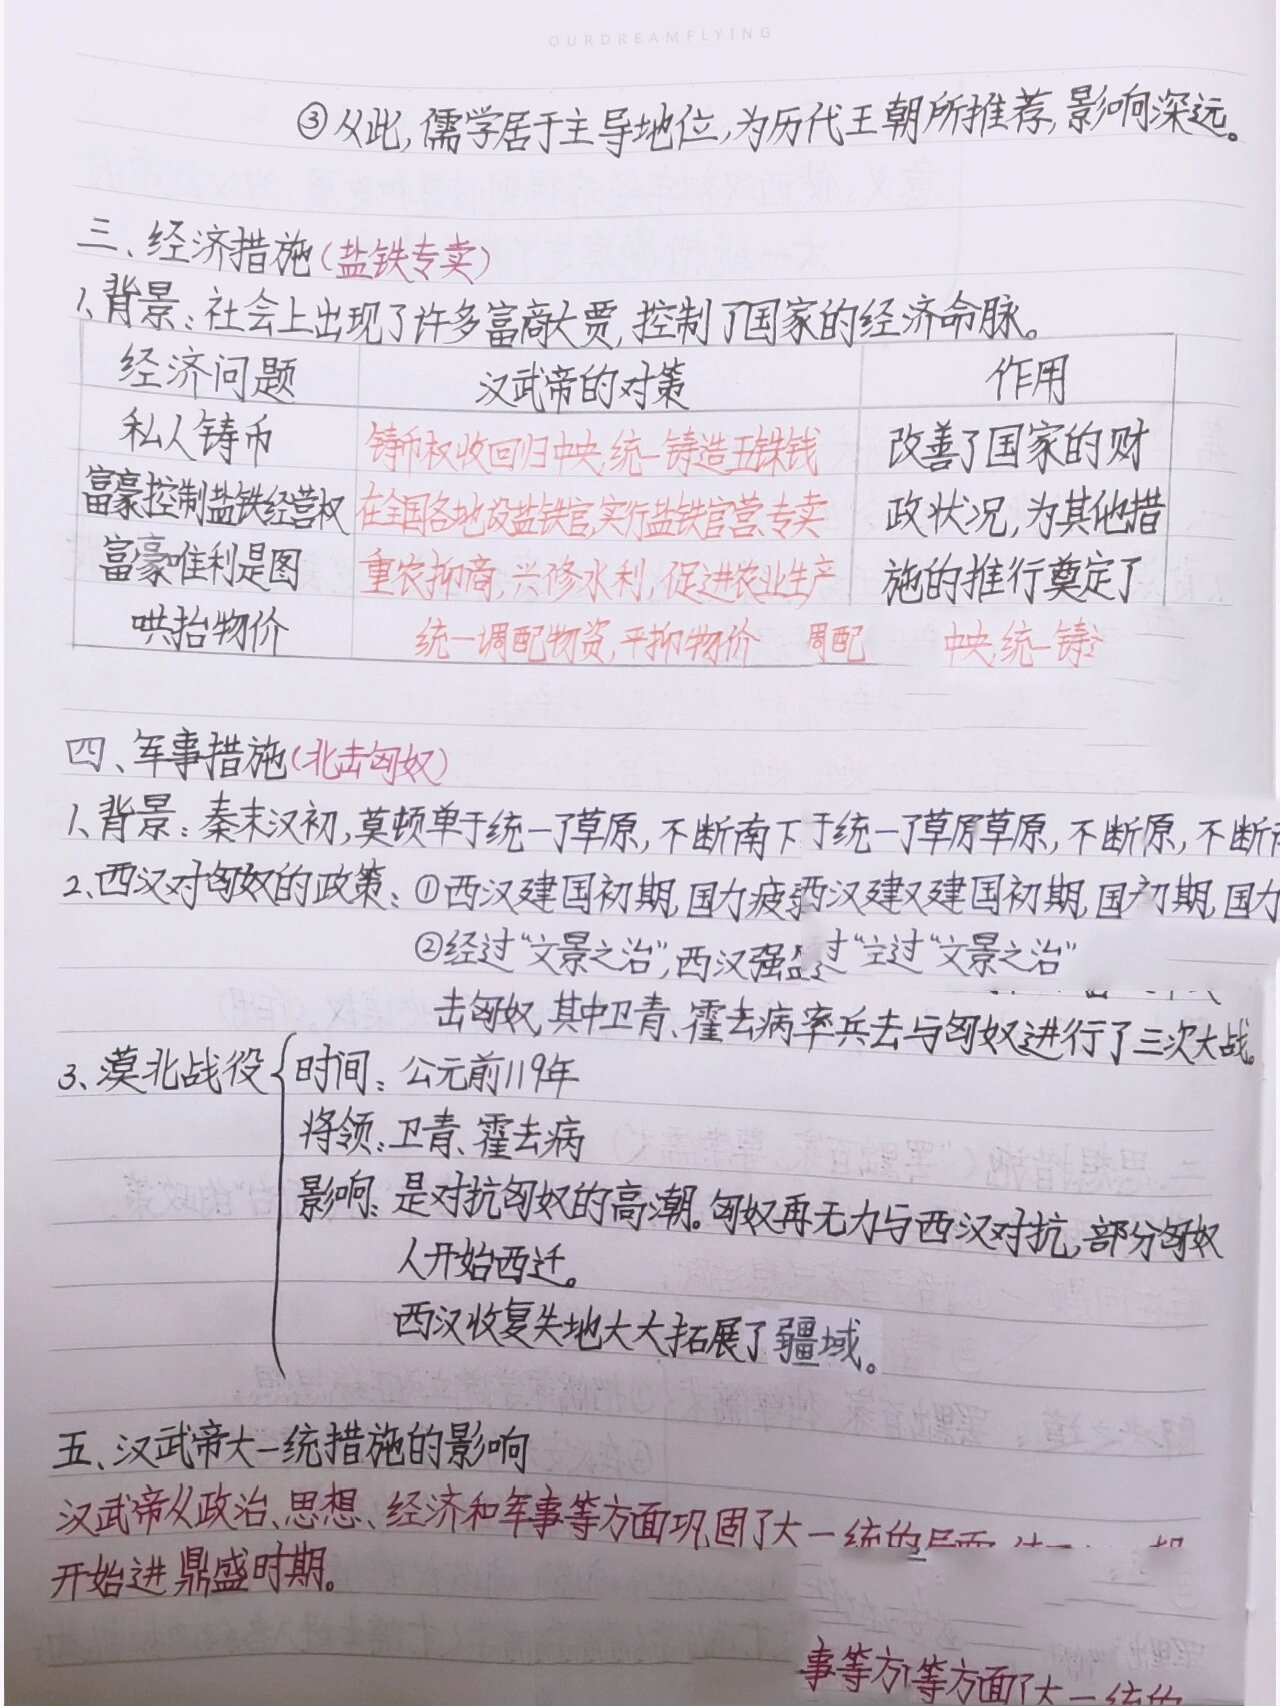 OURDREAMFLYING
③从此,儒学居于主导地位,为历代王朝所推荐,影响深远。
三、经济措施(盐铁专卖)
1、背景:社会上出现了许多富商大贾,控制了国家的经济命脉。
经济问题 汉武帝的对策 作用
私人铸币 铸币权收回归中央,统一铸造五铢钱 改善了国家的财
富豪控制盐铁经营权 在全国各地设盐铁官,实行盐铁官营、专卖 政状况,为其他措
富豪唯利是图 重农抑商,兴修水利,促进农业生产 施的推行奠定了
哄抬物价 统一调配物资,平抑物价 周配 中央,统一铸
四、军事措施(北击匈奴)
1、背景:秦末汉初,莫顿单于统一了草原,不断南下于统一了草原草原,不断原,不断
2、西汉对匈奴的政策:①西汉建国初期,国力疲西汉建汉建国初期,国初期,国力
②经过“文景之治”,西汉强过“过“文景之治”
击匈奴,其中卫青、霍去病率兵去与匈奴进行了三次大战。
3、漠北战役 时间:公元前119年
将领:卫青、霍去病
影响:是对抗匈奴的高潮。匈奴再无力与西汉对抗,部分匈奴
人开始西迁。
西汉收复失地大大拓展了疆域。
五、汉武帝大一统措施的影响
汉武帝从政治、思想、经济和军事等方面巩固了大一统的局面
开始进鼎盛时期。
事等方等方面了大一统的